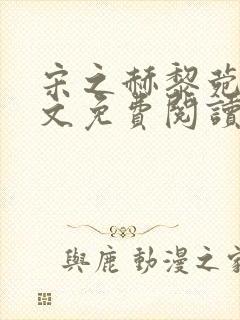 宋之赫黎菀
文免費閱讀
與鹿 動漫之家